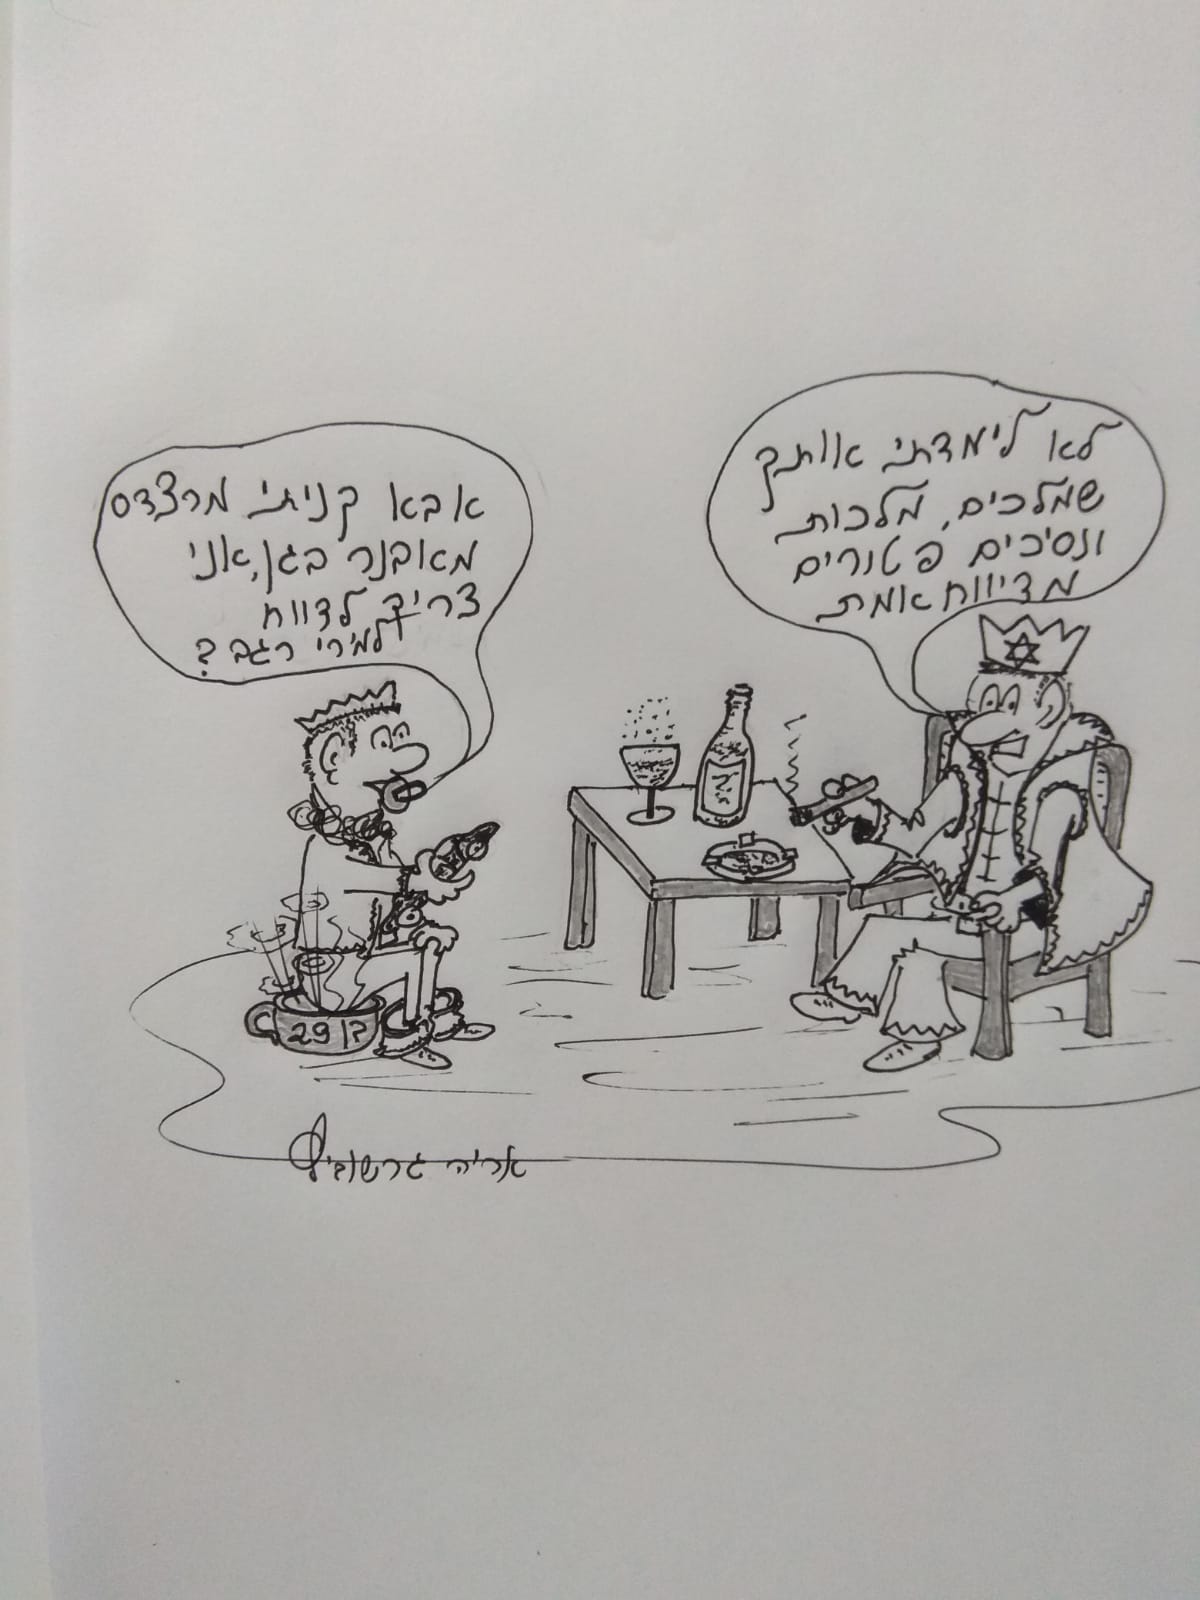 לא לימדתי אותך
שמלכים, מלכות
ונסיכים פטורים
מדיווח אמת
אבא קניתי מרצדס
מאובנר בגן, אני
צריך לדווח
למירי רגב?
בן 29
אריה גרשוביץ